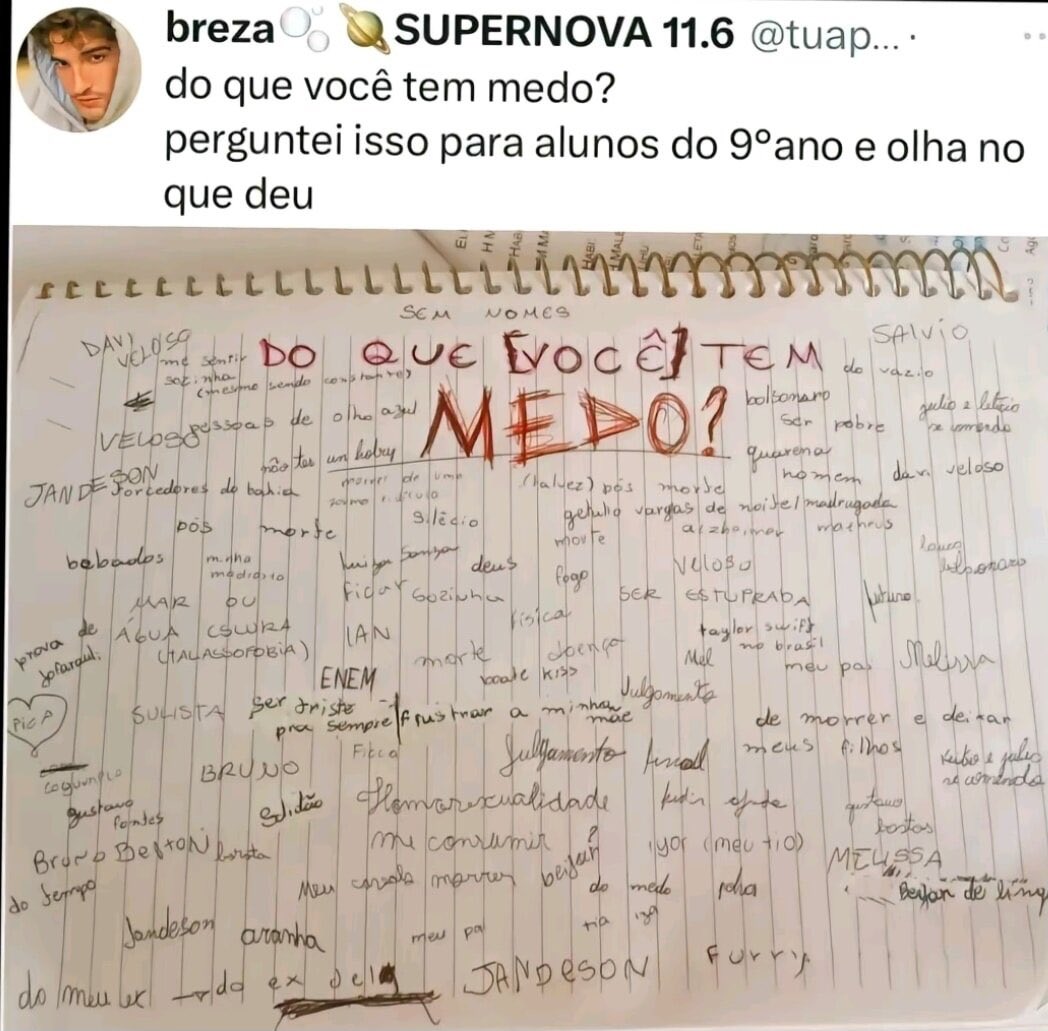 breza SUPERNOVA 11.6 @tuap... ·
do que você tem medo?
perguntei isso para alunos do 9ºano e olha no
que deu
SEM NOMES
DAVI
VELOSO
me sentir
sozinha
(mesmo sendo constante)
DO QUE [VOCÊ] TEM
MEDO?
SALVIO
do vazio
VELOSO
pessoas de olho azul
não ter un hobby
bolsonaro
ser pobre
julio e leticio
se comendo
quarena
homem
davi veloso
JANDESON
torcedores do bahia
morrer de uma
(talvez) pós morte
getulio vargas de noite/madrugada
pós morte
silêcio
morte
alzheimer
matheus
bebados
minha
luiza sonza
deus
fogo
VELOSO
MAR OU
ÁGUA ESCURA
(TALASSOFOBIA)
ficar sozinha
IAN
física
SER ESTUPRADA
futuro
prova de
taylor swift
no brasil
morte
doença
ENEM
boate kiss
Mel
meu pai
Melissa
PICA
SULISTA
ser triste
pra sempre
frustrar a minha
mãe
Julgamento
de morrer e deixar
meus filhos
BRUNO
Julgamento final
gustavo
fontes
solidão
Homorexualidade
me consumir
gustavo
bostas
Bruno Belton
barata
iyor (meu tio)
MELISSA
do tempo
Meu cavalo morrer
beijar?
do medo
Beijar de líng
Jandeson
aranha
meu pa
JANDESON
Furry
do meu ex